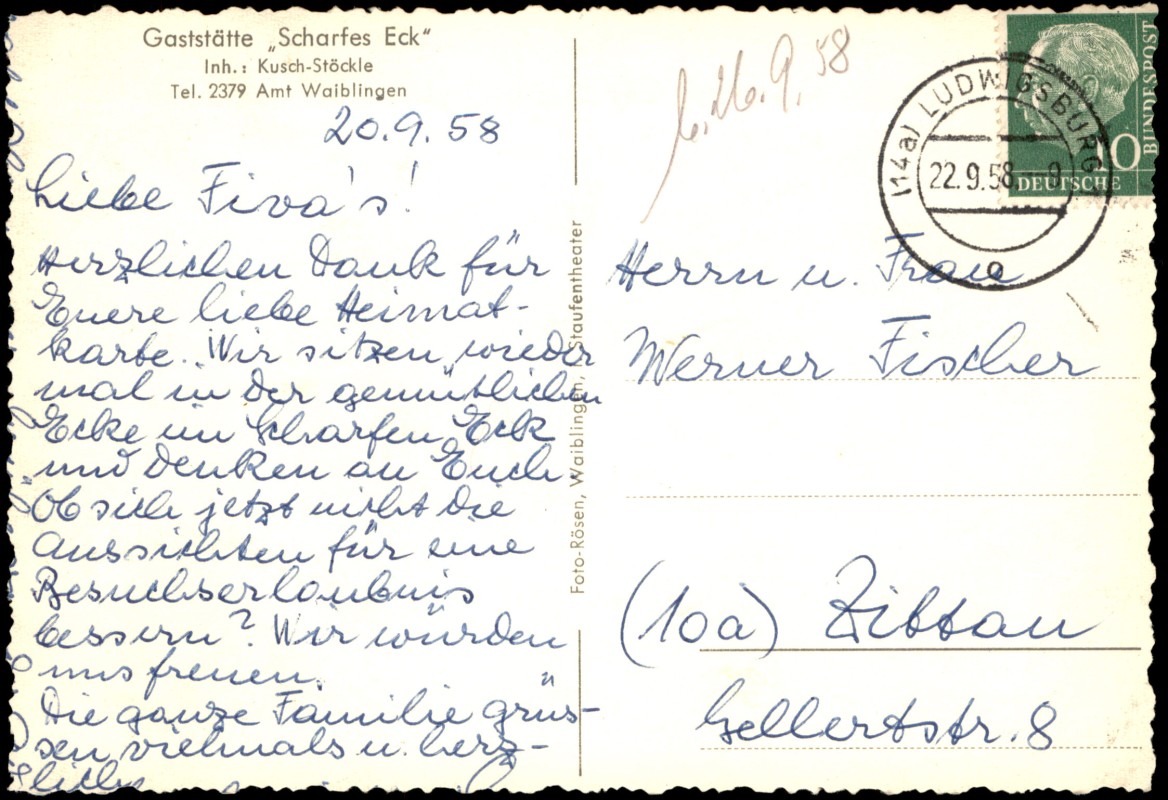 Gaststätte „Scharfes Eck"
Inh.: Kusch-Stöckle
Tel. 2379 Amt Waiblingen
20.9.58
Liebe Fiva's!
Herzlichen Dank für
Euere liebe Heimat-
karte. Wir sitzen wieder
mal in der gemütlichen
Ecke im Scharfen Eck
und denken an Euch.
Ob sich jetzt nicht die
Aussichten für eine
Besuchserlaubnis
bessern? Wir würden
uns freuen.
Die ganze Familie grüs-
sen vielmals u. herz-
lich
Foto-Rösen, Waiblingen, Staufentheater
26.9.58
(14a) LUDWIGSBURG
22.9.58 - 9
BUNDESPOST
10
DEUTSCHE
Herrn u. Frau
Werner Fischer
(10a) Zittau
Gellertstr. 8